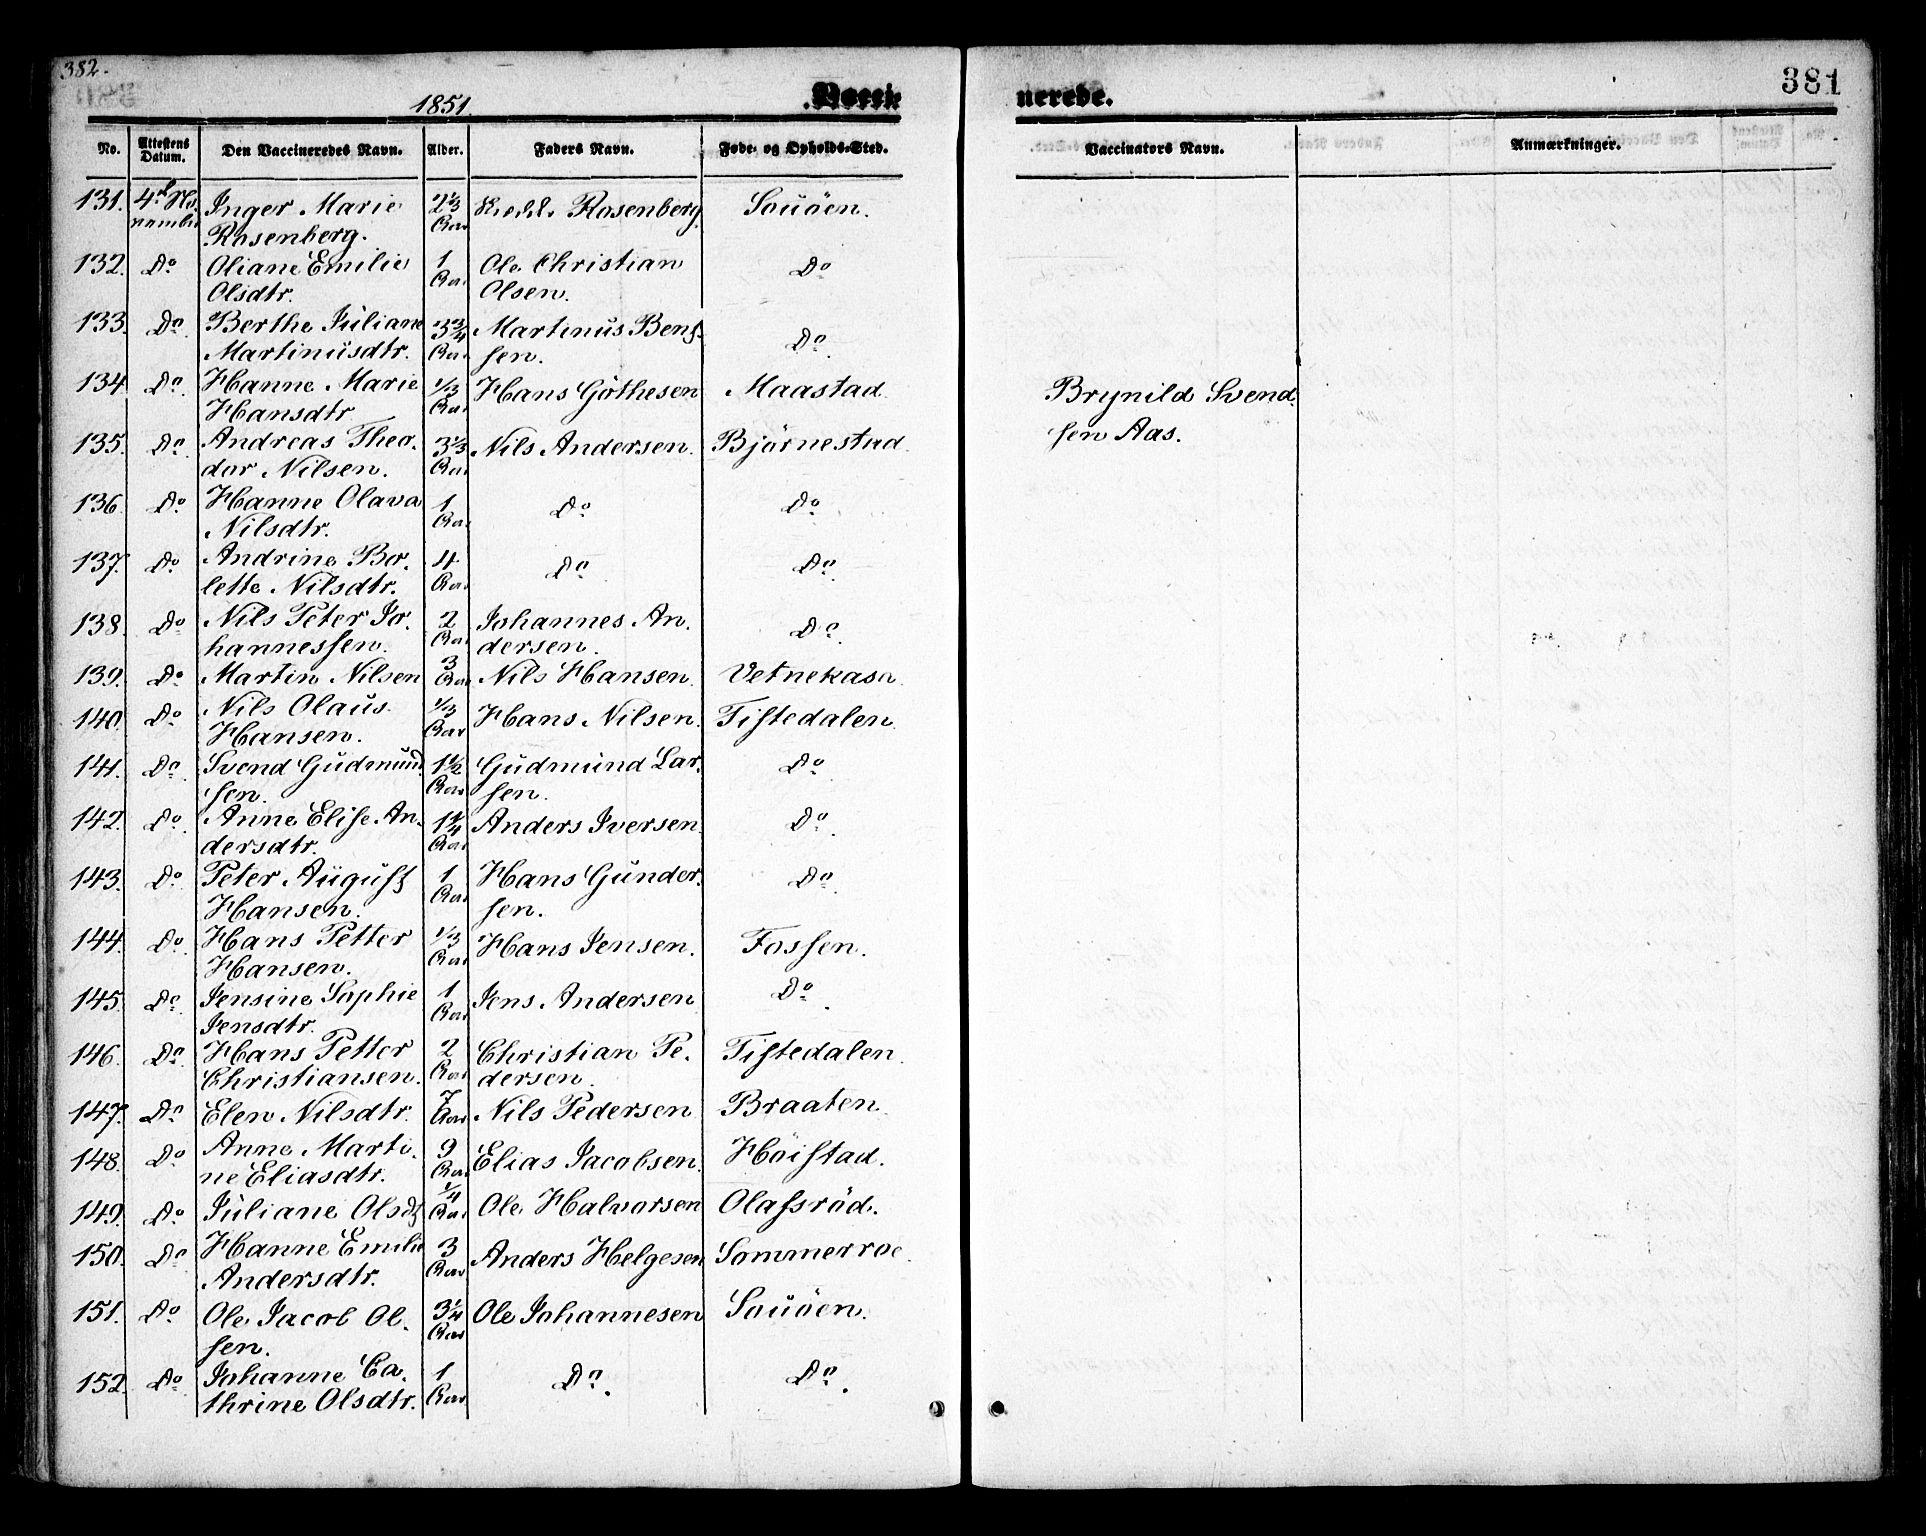 382.
1851.
Vacci-
nerede.
381
No. Attestens Datum. Den Vaccineredes Navn. Alder. Faders Navn. Føde- og Opholds-Sted.
Vaccinators Navn. Anmærkninger.
131. 4de No- Inger Marie 2 1/3 Rosenberg. Souöen.
vember Rosenberg. Aar
132. Do Oliane Emilie 1 Ole Christian Do
Olsdtr. Aar Olsen.
133. Do Berthe Juliane 3 3/4 Martinus Bens- Do
Martinusdtr. Aar sen.
134. Do Hanne Marie 1/3 Hans Göthesen Maastad. Brynild Svend-
Hansdtr. Aar
135. Do Andreas Theo- 3 1/3 Nils Andersen. Björnestad. sen Aas.
dor Nilsen. Aar
136. Do Hanne Olava 1 Do Do
Nilsdtr. Aar
137. Do Andrine Bo- 4 Do Do
lette Nilsdtr. Aar
138. Do Nils Peter Jo- 2 Johannes An- Do
hannessen. Aar dersen.
139. Do Martin Nilsen 3 Aar Nils Hansen. Vetnekasa
140. Do Nils Olaus 1/3 Hans Nilsen. Tistedalen.
Hansen. Aar
141. Do Svend Gudmund- 1 1/2 Gudmund Lar- Do
sen. Aar sen.
142. Do Anne Elise An- 1 1/4 Anders Iversen. Do
dersdtr. Aar
143. Do Peter August 1 Hans Gunder- Do
Hansen. Aar sen.
144. Do Hans Petter 1/3 Hans Jensen. Fossen.
Hansen. Aar
145. Do Jensine Sophie 1 Jens Andersen Do
Jensdtr. Aar
146. Do Hans Petter 2 Christian Pe- Tistedalen.
Christiansen. Aar dersen.
147. Do Elen Nilsdtr. 7 Aar Nils Pedersen Braaten.
148. Do Anne Marti- 9 Elias Jacobsen. Höistad.
ne Eliasdtr. Aar
149. Do Juliane Olsdt 1/4 Aar Ole Halvorsen Olafsröd.
150. Do Hanne Emilie 3 Anders Helgesen Sommerroe.
Andersdtr. Aar
151. Do Ole Jacob Ol- 3 1/4 Ole Johannesen Souöen.
sen. Aar
152. Do Johanne Ca- 1 Do. Do.
thrine Olsdtr. Aar